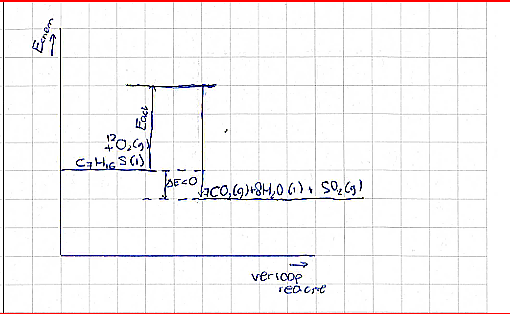 Ener
Eact
12
+O₂(g)
C₇H₁₆S(l)
ΔE<0
7CO₂(g)+8H₂O(l) + SO₂(g)
verloop
reactie